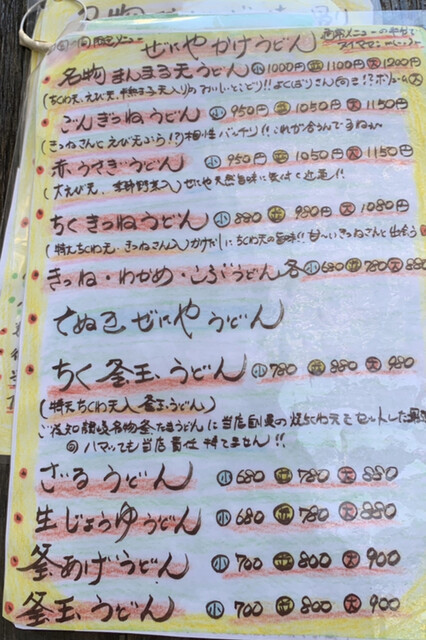 ぜにや かけうどん
名物 まんまる天うどん 小1000円 中1100円 大1200円
ごんぎつねうどん 小950円 中1050円 大1150円
(きつねさんとえび天ぷら!?相性バッチリ!!これが合うんですねぇ
赤うさぎうどん 小950円 中1050円 大1150円
ちくきつねうどん 小880 中980円 大1080円
(特大ちくわ天・きつねさん入)かけだしにちくわ天の旨味!!甘〜いきつねさんと出会う
きつね・わかめ・こぶうどん各 小680 中780 大880
さぬき ぜにやうどん
ちく釜玉うどん 小780 中880 大980
(特大ちくわ天入釜玉うどん)
ご存知讃岐名物釜たまうどんに当店自慢の
ハマッても当店責任持てません!!
ざるうどん 小680 中780 大880
生じょうゆうどん 小680 中780 大880
釜あげうどん 小700 中800 大900
釜玉うどん 小700 中800 大900